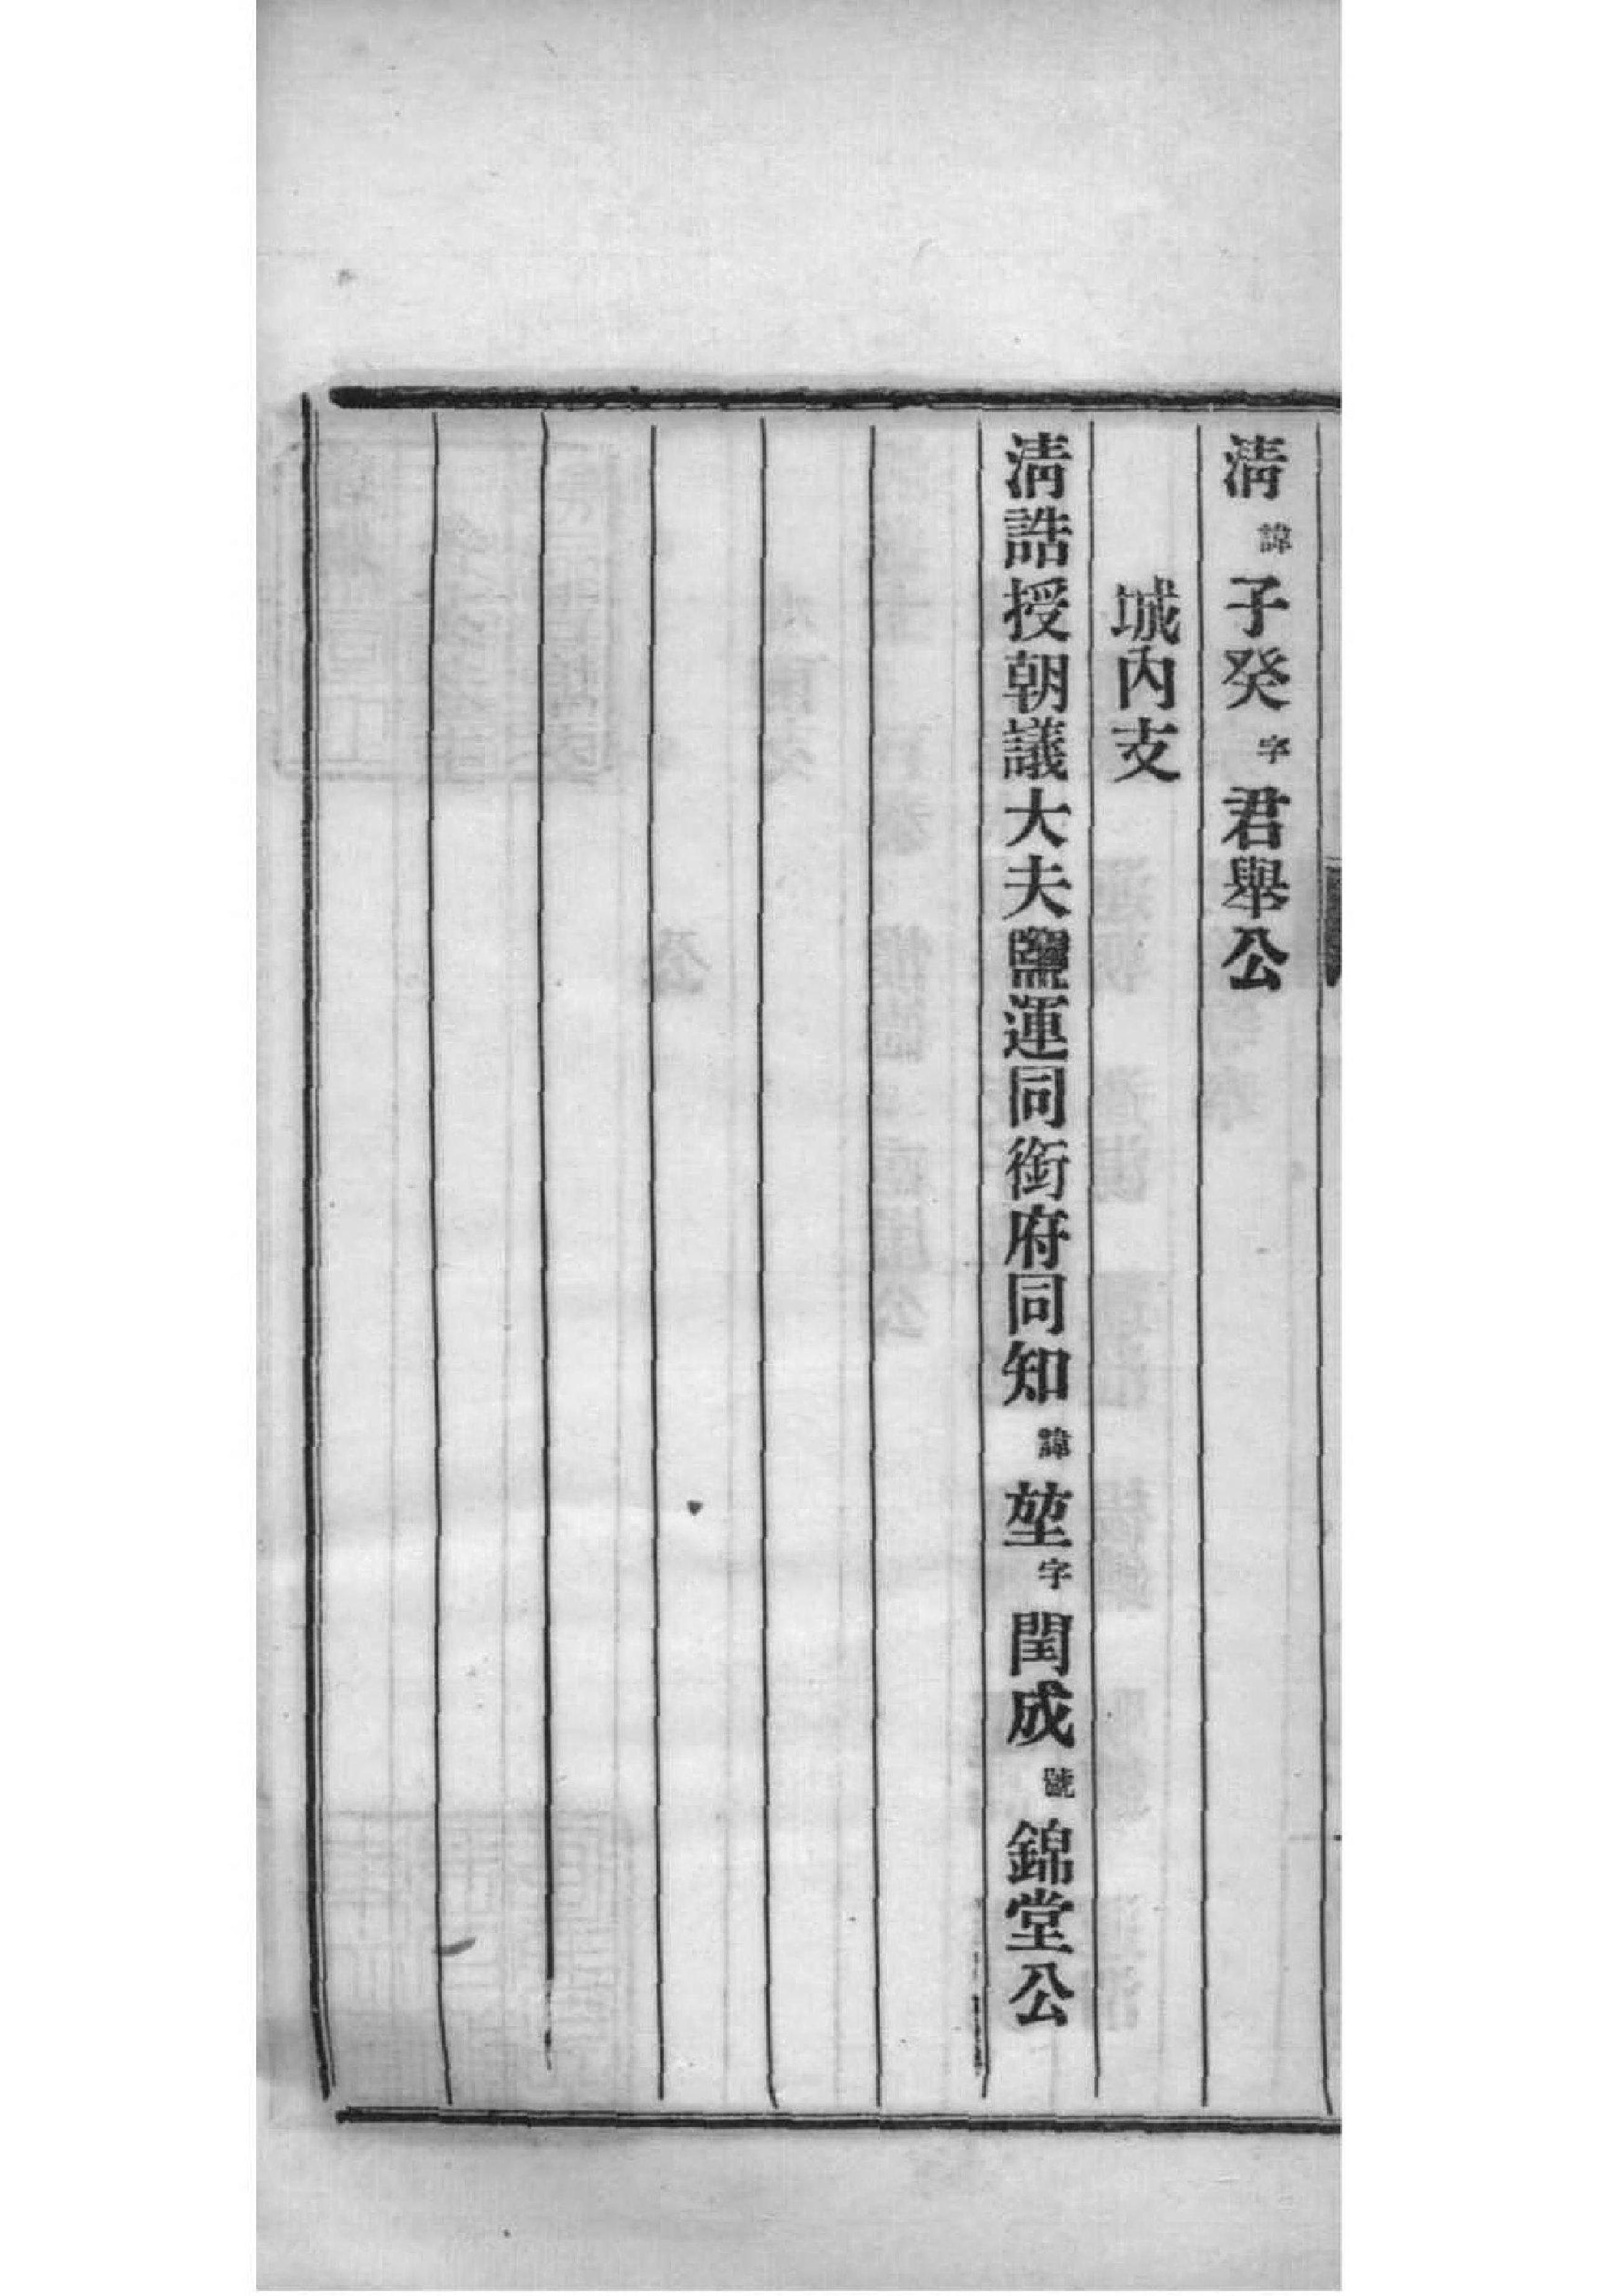 淸諱子癸字君舉公
城內支
淸誥授朝議大夫鹽運同銜府同知諱堃字閏成號錦堂公